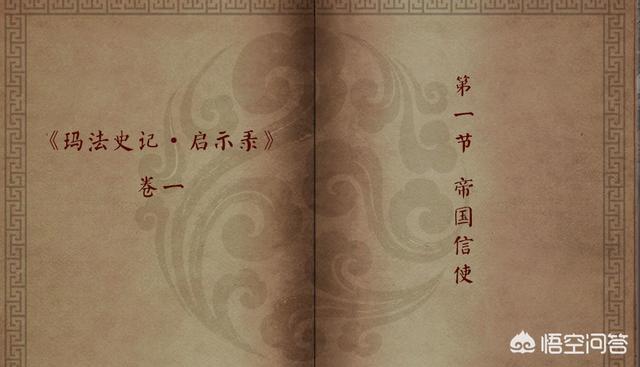 《玛法史记·启示录》
卷一
第一节 帝国信使
悟空问答